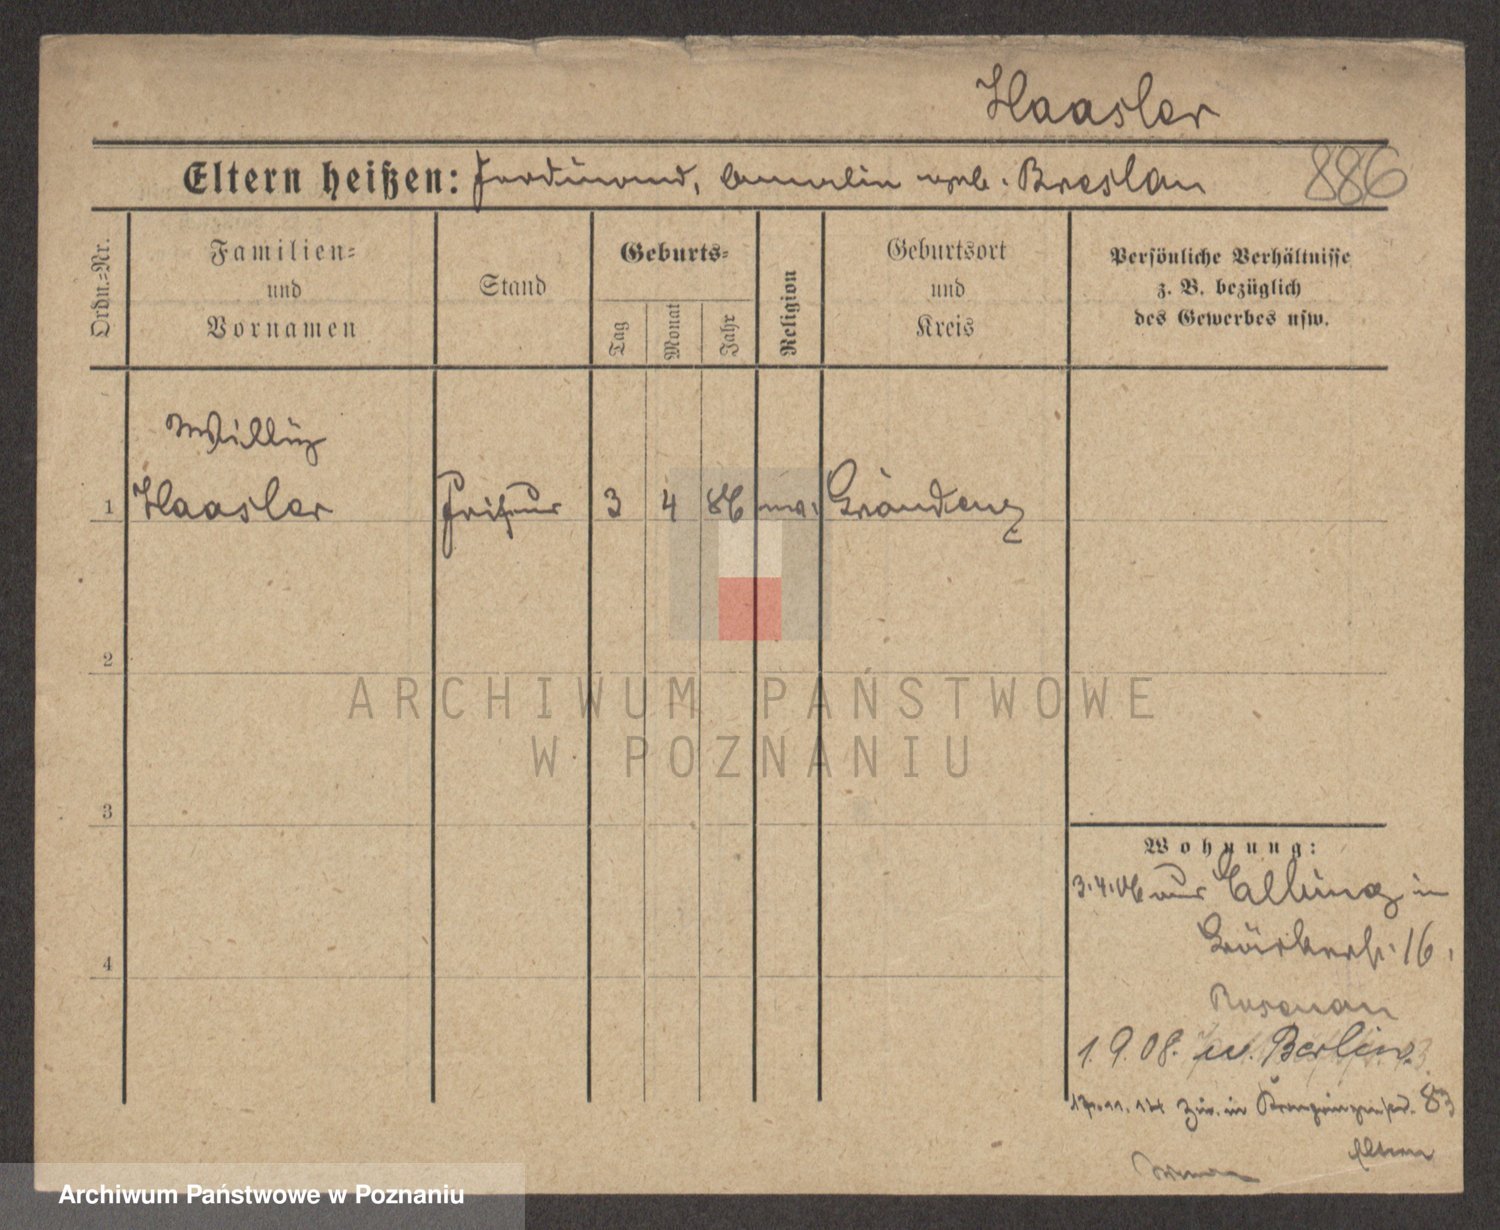 Haasler
Eltern heißen: Ferdinand, geb. Breslau 886
Ordn.-Nr.
Familien-
und
Vornamen
Stand
Geburts-
Tag
Monat
Jahr
Religion
Geburtsort
und
Kreis
Persönliche Verhältnisse
z. B. bezüglich
des Gewerbes usw.
Willy
1 Haasler Friseur 3 4 86 Graudenz
2
3
4
ARCHIWUM PAŃSTWOWE
W POZNANIU
Wohnung:
3.4.06 aus Elbing in
16.
1.9.08. n. Berlin
zur. in Kronprinzenstr. 83
Archiwum Państwowe w Poznaniu